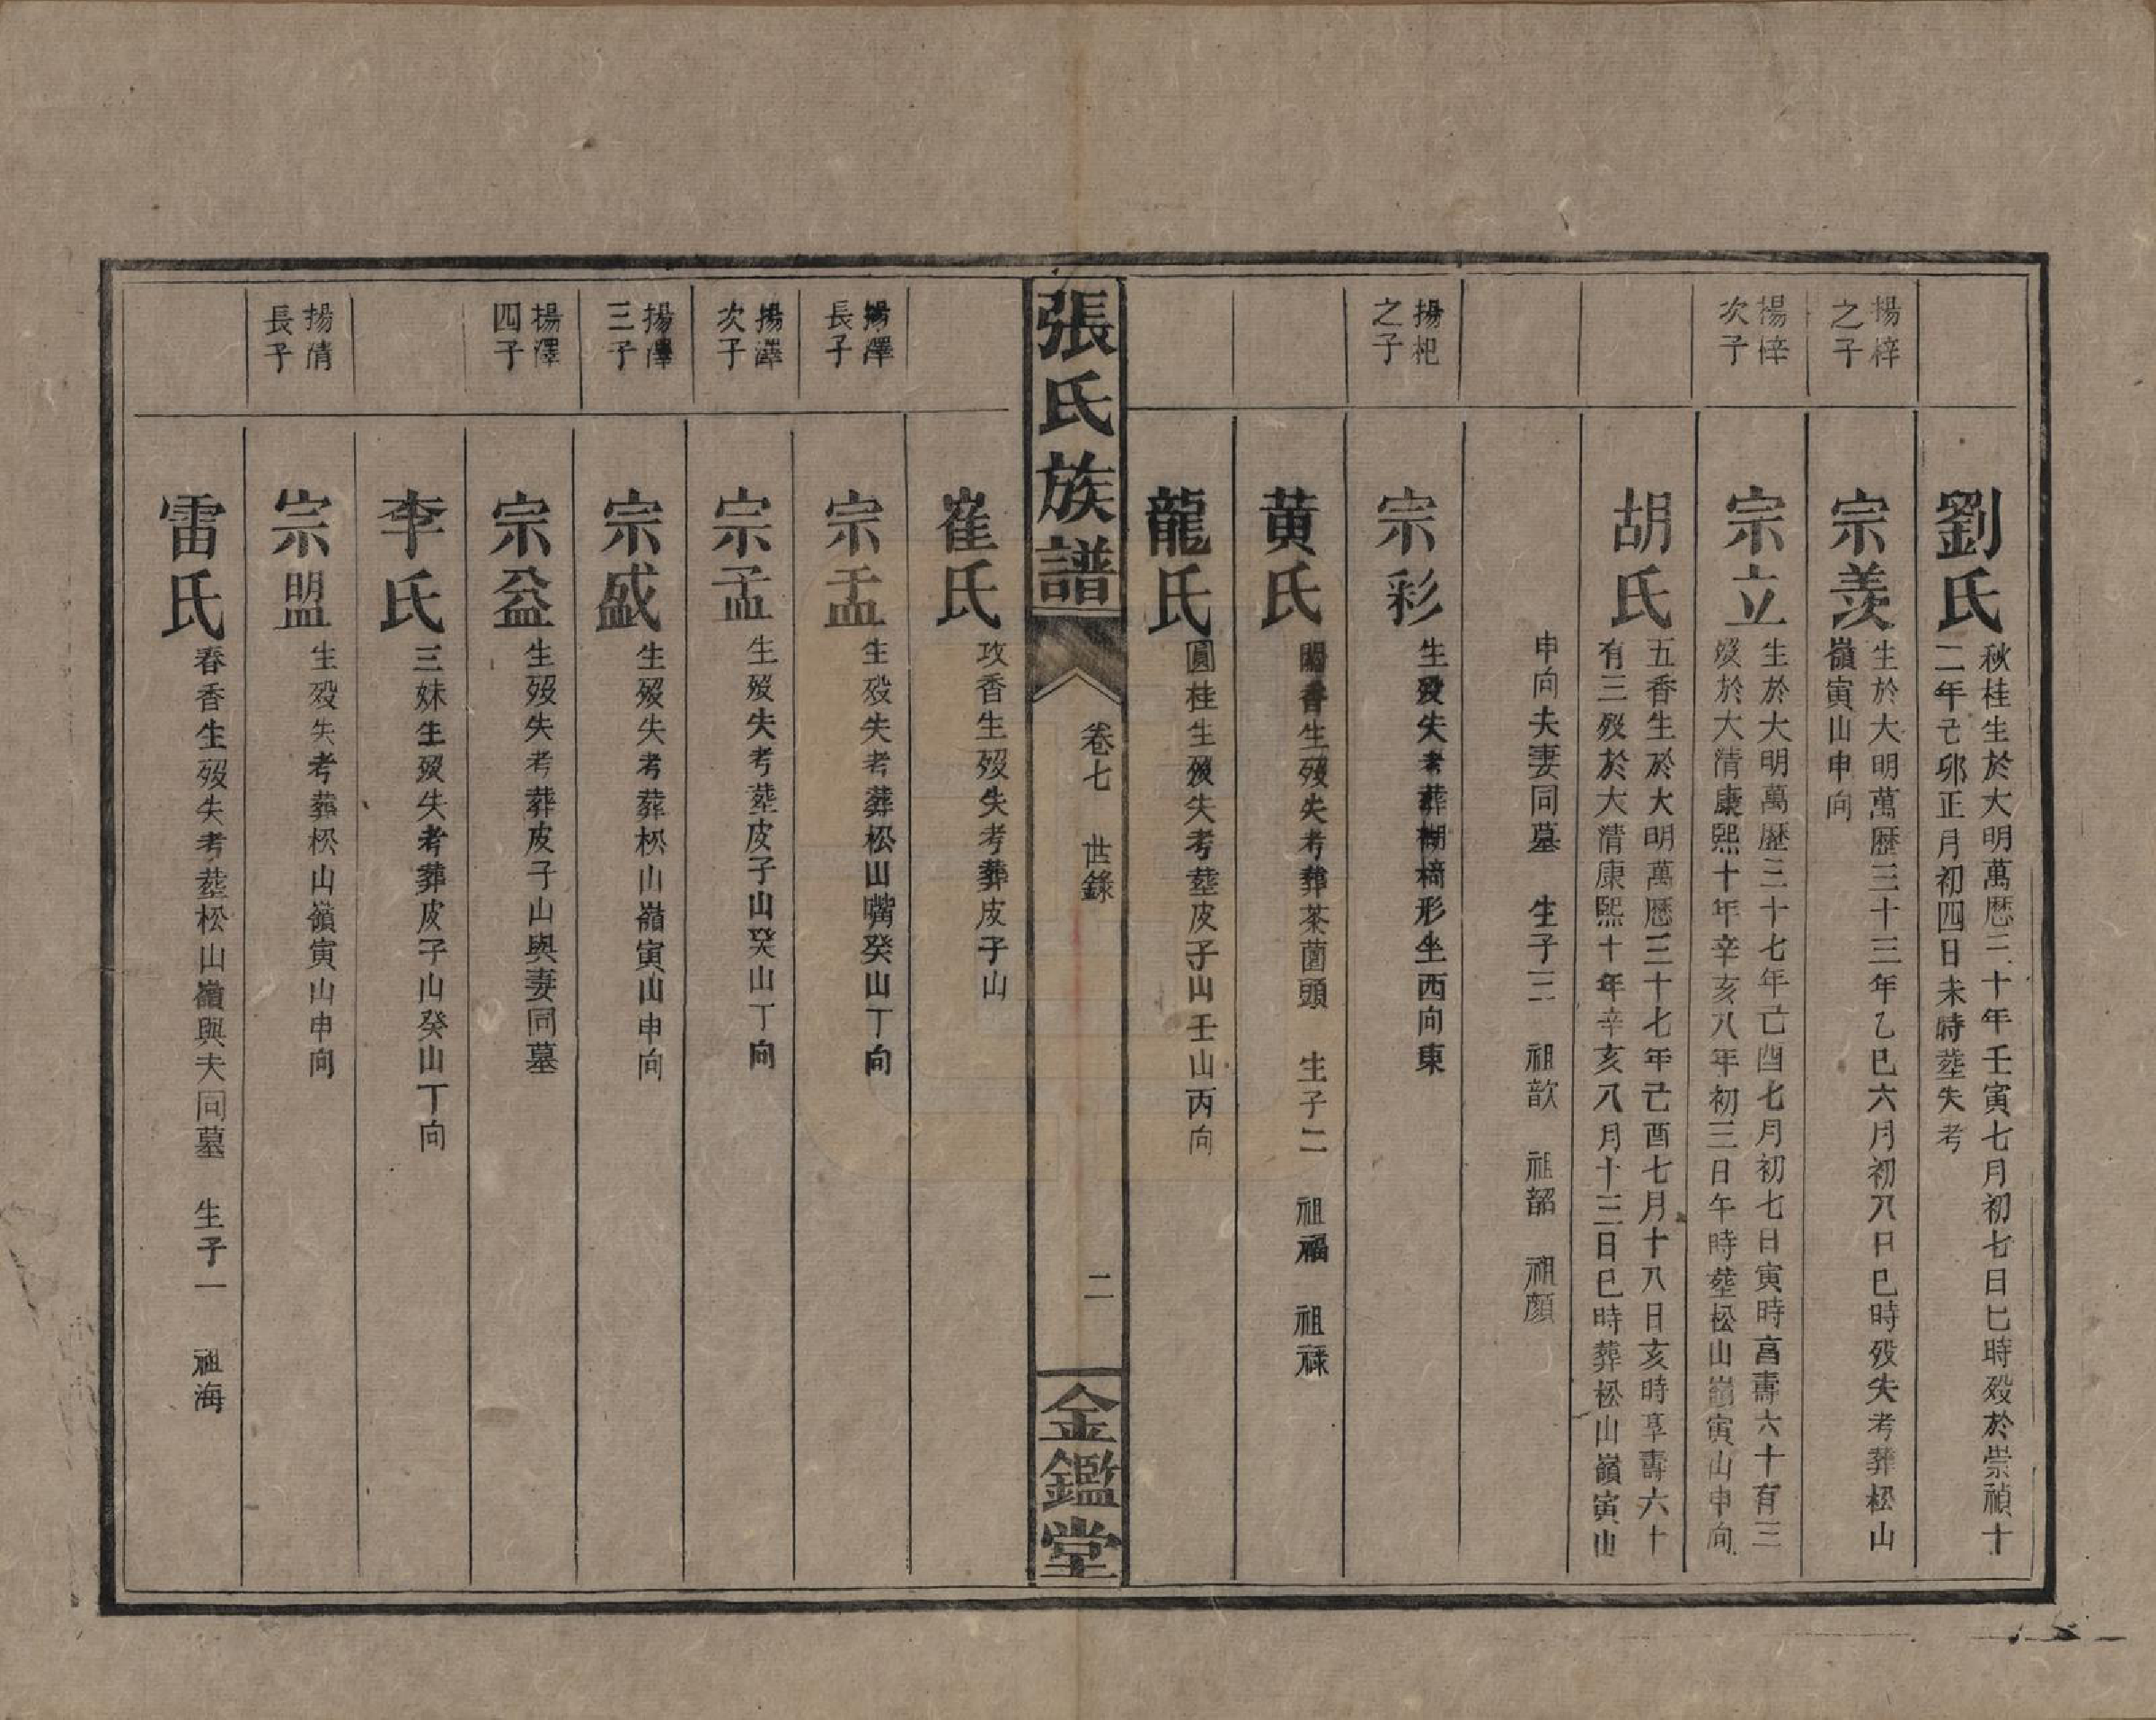 劉氏
秋桂生於大明萬歷三十年壬寅七月初七日巳時殁於崇禎十
二年己卯正月初四日未時塟失考
揚梓
之子
宗羨
生於大明萬歷三十三年乙巳六月初八日巳時殁失考葬松山
嶺寅山申向
楊梓
次子
宗立
生於大明萬歷三十七年己酉七月初七日寅時享壽六十有三
殁於大清康熙十年辛亥八年初三日午時塟松山嶺寅山申向
胡氏
五香生於大明萬歷三十七年己酉七月十八日亥時享壽六十
有三殁於大清康熙十年辛亥八月十三日巳時葬松山嶺寅山
申向夫妻同墓 生子三 祖歆 祖韶 祖顏
揚杞
之子
宗彩
生殁失考葬椅形坐西向東
黄氏
香生殁失考葬茶薗頭 生子二 祖福 祖祿
龍氏
圓桂生殁失考塟皮子山壬山丙向
張氏族譜
卷七 世錄
二
金鑑堂
崔氏
攻香生殁失考葬皮子山
揚澤
長子
宗盂
生殁失考葬松山嘴癸山丁向
揚澤
次子
宗孟
生殁失考塟皮子山癸山丁向
揚澤
三子
宗盛
生殁失考葬松山嶺寅山申向
揚澤
四子
宗益
生殁失考葬皮子山與妻同墓
李氏
三妹生殁失考葬皮子山癸山丁向
揚清
長子
宗盟
生殁失考葬松山嶺寅山申向
雷氏
春香生殁失考塟松山嶺與夫同墓 生子一 祖海